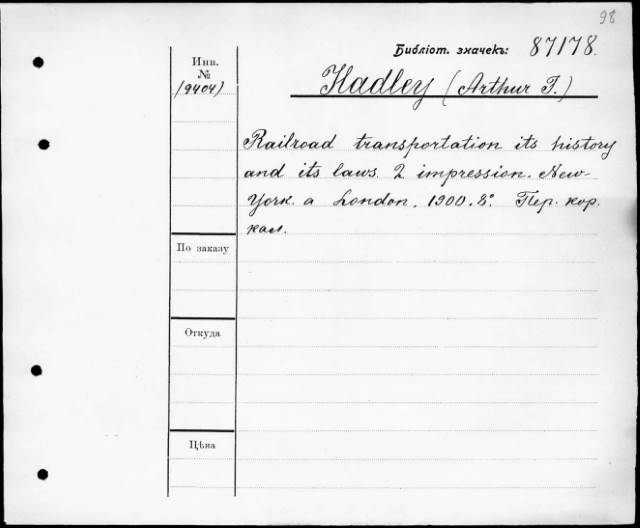 98
Библіот. значекъ: 87178.
Инв.
№
19404)
Hadley (Arthur T.)
Railroad transportation its history
and its laws. 2 impression. New-
York. a London. 1900. 8°. Пер. кор.
кал.
По заказу
Откуда
Цѣна